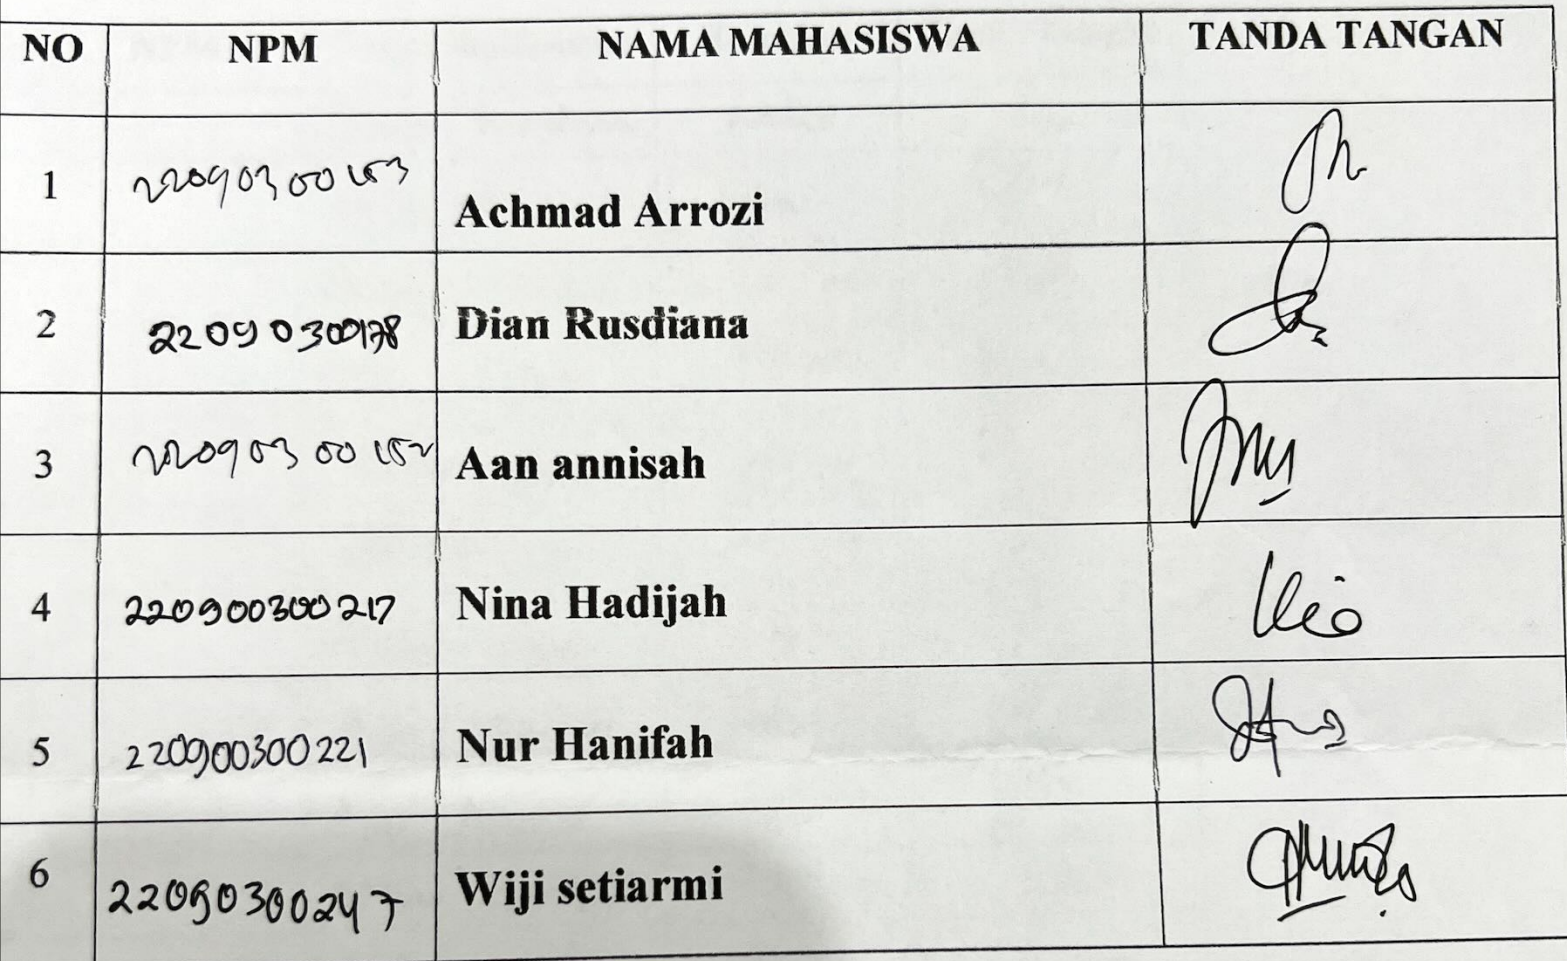 NO NPM NAMA MAHASISWA TANDA TANGAN
1 22090300153 Achmad Arrozi
2 22090300178 Dian Rusdiana
3 22090300152 Aan annisah
4 220900300217 Nina Hadijah
5 220900300221 Nur Hanifah
6 22090300247 Wiji setiarmi